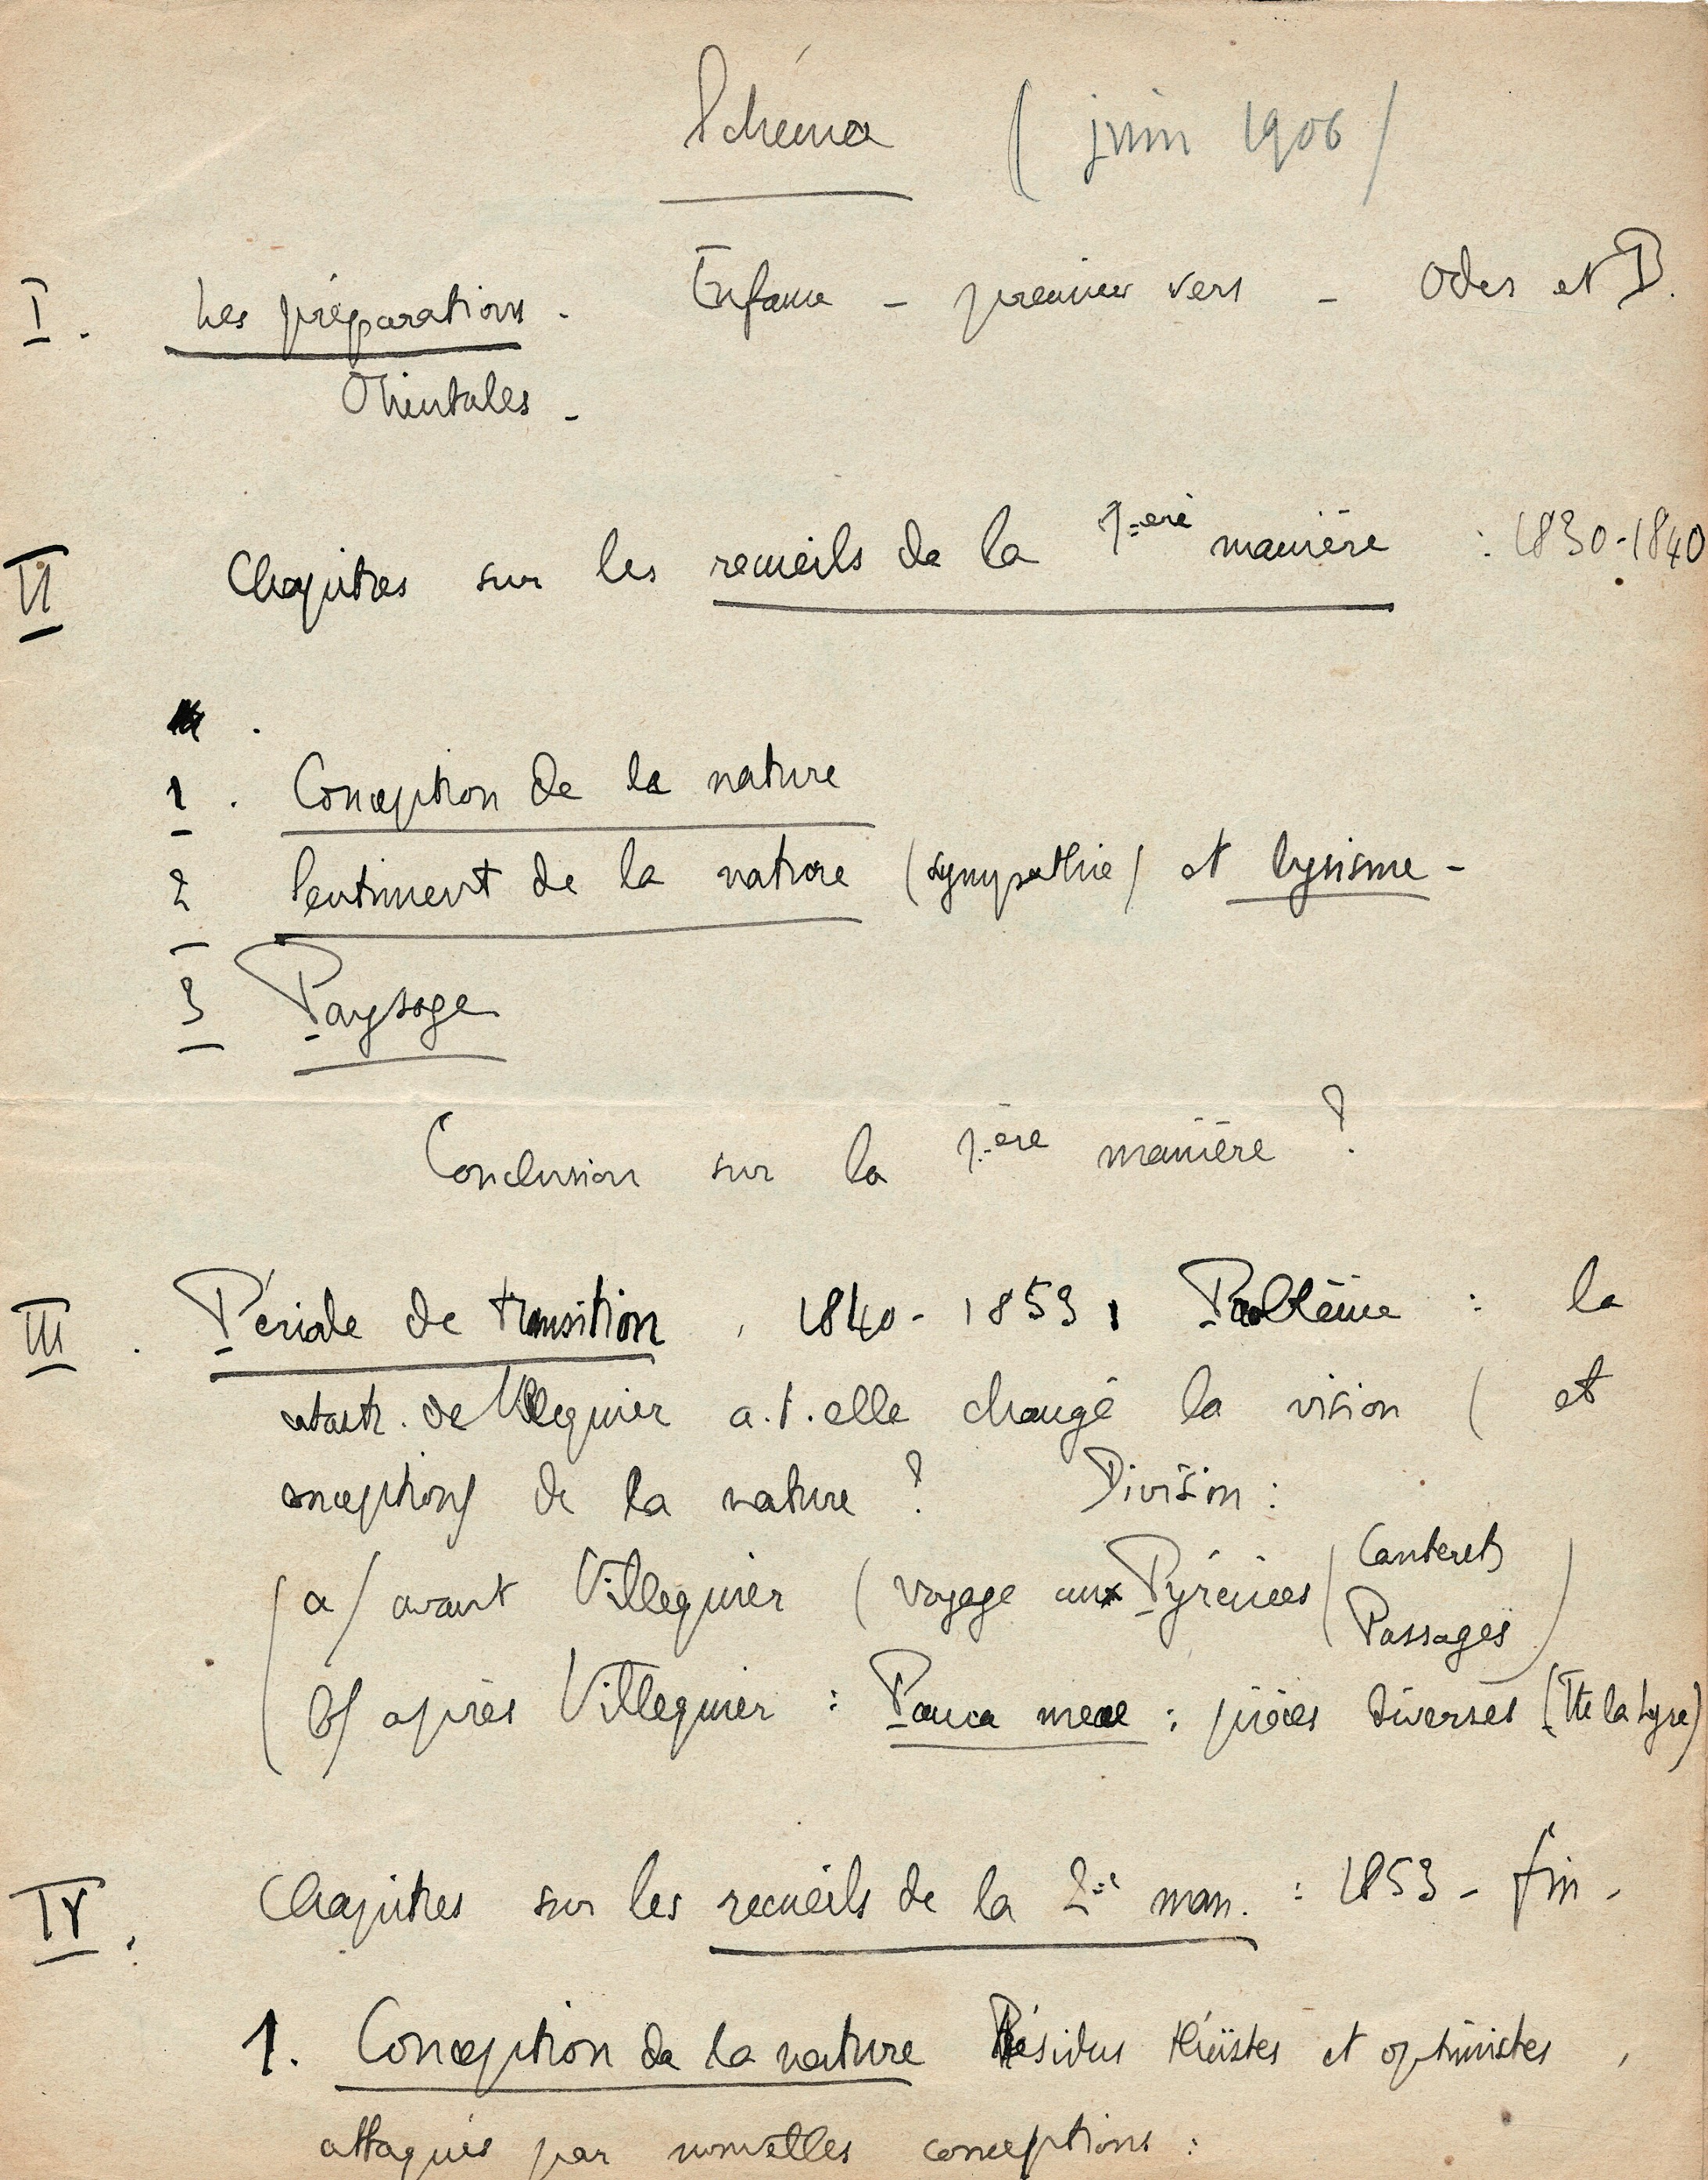 Schéma ( juin 1906 )
I. Les préparations. Enfance - premiers vers - Odes et B.
Orientales -
II Chapitres sur les recueils de la 1ère manière : 1830-1840
1. Conception de la nature
2 Sentiment de la nature (sympathie) et lyrisme -
3 Paysage
Conclusion sur la 1ère manière ?
III. Période de transition, 1840-1853. Problème : la
catastr. de Villequier a.t.elle changé la vision ( et
conception) de la nature ? Division :
a) avant Villequier ( voyage aux Pyrénées ( Cauterets
Passages )
b) après Villequier : Pauca meae : pièces diverses (Tte la Lyre)
IV. Chapitres sur les recueils de la 2e man. : 1853 - fin -
1. Conception de la nature Résidus théistes et optimistes,
attaqués par nouvelles conceptions :